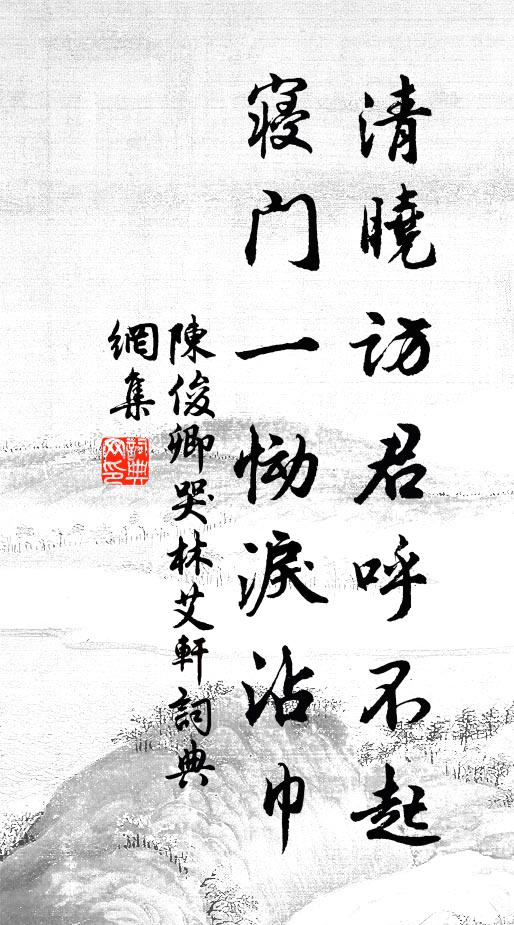 清曉訪君呼不起
寝門一慟淚沾巾
陳俊卿哭林艾軒詞典
網集
詞典
网印